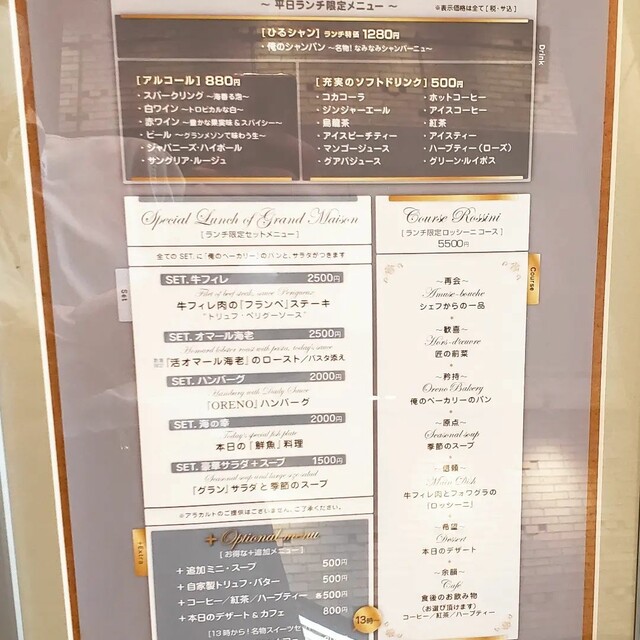 ～ 平日ランチ限定メニュー ～
※表示価格は全て[ 税・サ込 ]
Drink
[ひるシャン] ランチ特価 1280円
・俺のシャンパン ～名物! なみなみシャンパーニュ～
[アルコール] 880円
・スパークリング ～海香る泡～
・白ワイン ～トロピカルな白～
・赤ワイン ～豊かな果実味&スパイシー～
・ビール ～グランメゾンで味わう生～
・ジャパニーズ・ハイボール
・サングリア・ルージュ
[充実のソフトドリンク] 500円
・コカコーラ
・ジンジャーエール
・烏龍茶
・アイスピーチティー
・マンゴージュース
・グアバジュース
・ホットコーヒー
・アイスコーヒー
・紅茶
・アイスティー
・ハーブティー(ローズ)
・グリーン・ルイボス
Special Lunch of Grand Maison
[ランチ限定セットメニュー]
全ての SET. に「俺のベーカリー」のパンと、サラダがつきます
Set
SET. 牛フィレ 2500円
牛フィレ肉の「フランベ」ステーキ
"トリュフ・ペリグーソース"
SET. オマール海老 2500円
Homard lobster roast with pasta, today's sauce
数量限定 「活オマール海老」のロースト/パスタ添え
SET. ハンバーグ 2000円
Hamburg with Daily Sauce
「ORENO」ハンバーグ
SET. 海の幸 2000円
Today's special fish plate
本日の「鮮魚」料理
SET. 豪華サラダ+スープ 1500円
Seasonal soup and large size salad
「グラン」サラダと季節のスープ
※アラカルトのご提供はございません。ご了承ください。
+Extra
+Optional menu
[お得な+追加メニュー]
+追加ミニ・スープ 500円
+自家製トリュフ・バター 500円
+コーヒー/紅茶/ハーブティー 各500円
+本日のデザート&カフェ 800円
13時
[13時から!名物スイーツセ
Course Rossini
[ランチ限定ロッシーニコース]
5500円
Course
～再会～
Amuse-bouche
シェフからの一品
～歓喜～
Hors-d'œuvre
匠の前菜
～矜持～
Oreno Bakery
俺のベーカリーのパン
～原点～
Seasonal soup
季節のスープ
～信頼～
Main Dish
牛フィレ肉とフォワグラの
「ロッシーニ」
～希望～
Dessert
本日のデザート
～余韻～
Café
食後のお飲み物
(お選び頂けます)
コーヒー/紅茶/ハーブティー